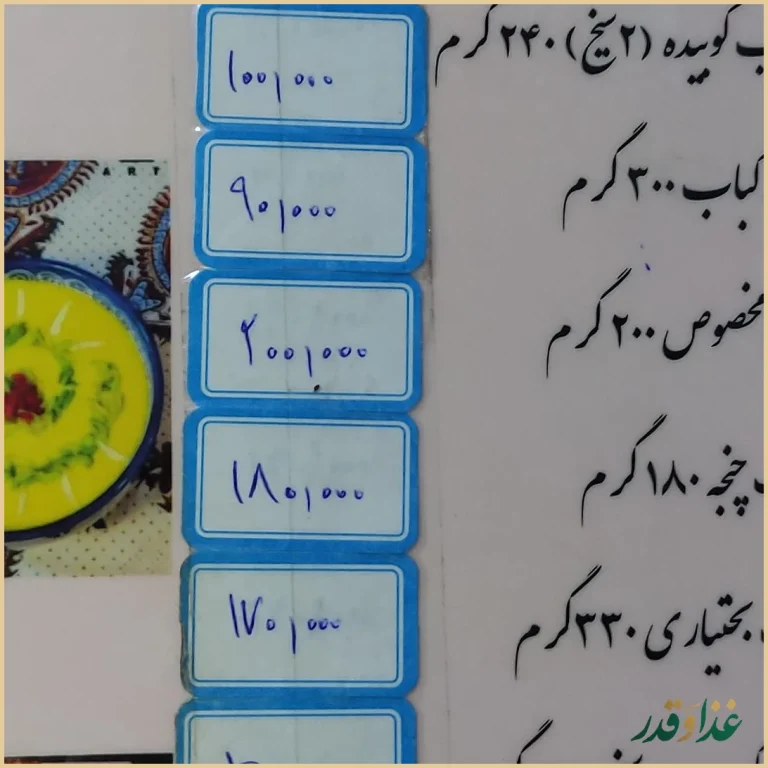 کوبیده (۲ سیخ) ۲۴۰ گرم
۱۰۰,۰۰۰
کباب ۳۰۰ گرم
۹۰,۰۰۰
مخصوص ۲۰۰ گرم
۲۰۰,۰۰۰
چنجه ۱۸۰ گرم
۱۸۰,۰۰۰
بختیاری ۳۳۰ گرم
۱۷۰,۰۰۰
ART
غذا و قدر